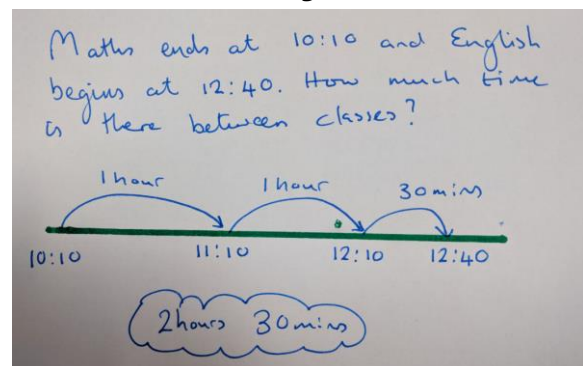 Maths ends at 10:10 and English
begins at 12:40. How much time
is there between classes?
1 hour 1 hour 30 mins
10:10 11:10 12:10 12:40
2 hours 30 mins